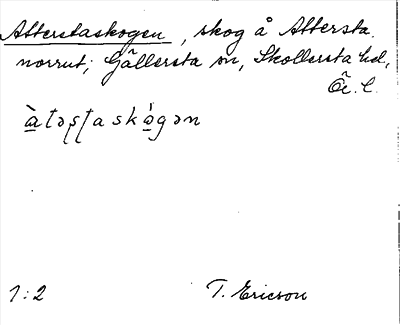 Atterstaskogen, skog å Attersta.
norrut; Gällersta sn, Skollersta hd,
Ör. l.
àtəʂʈaskò̱gən
1:2 T. Ericson